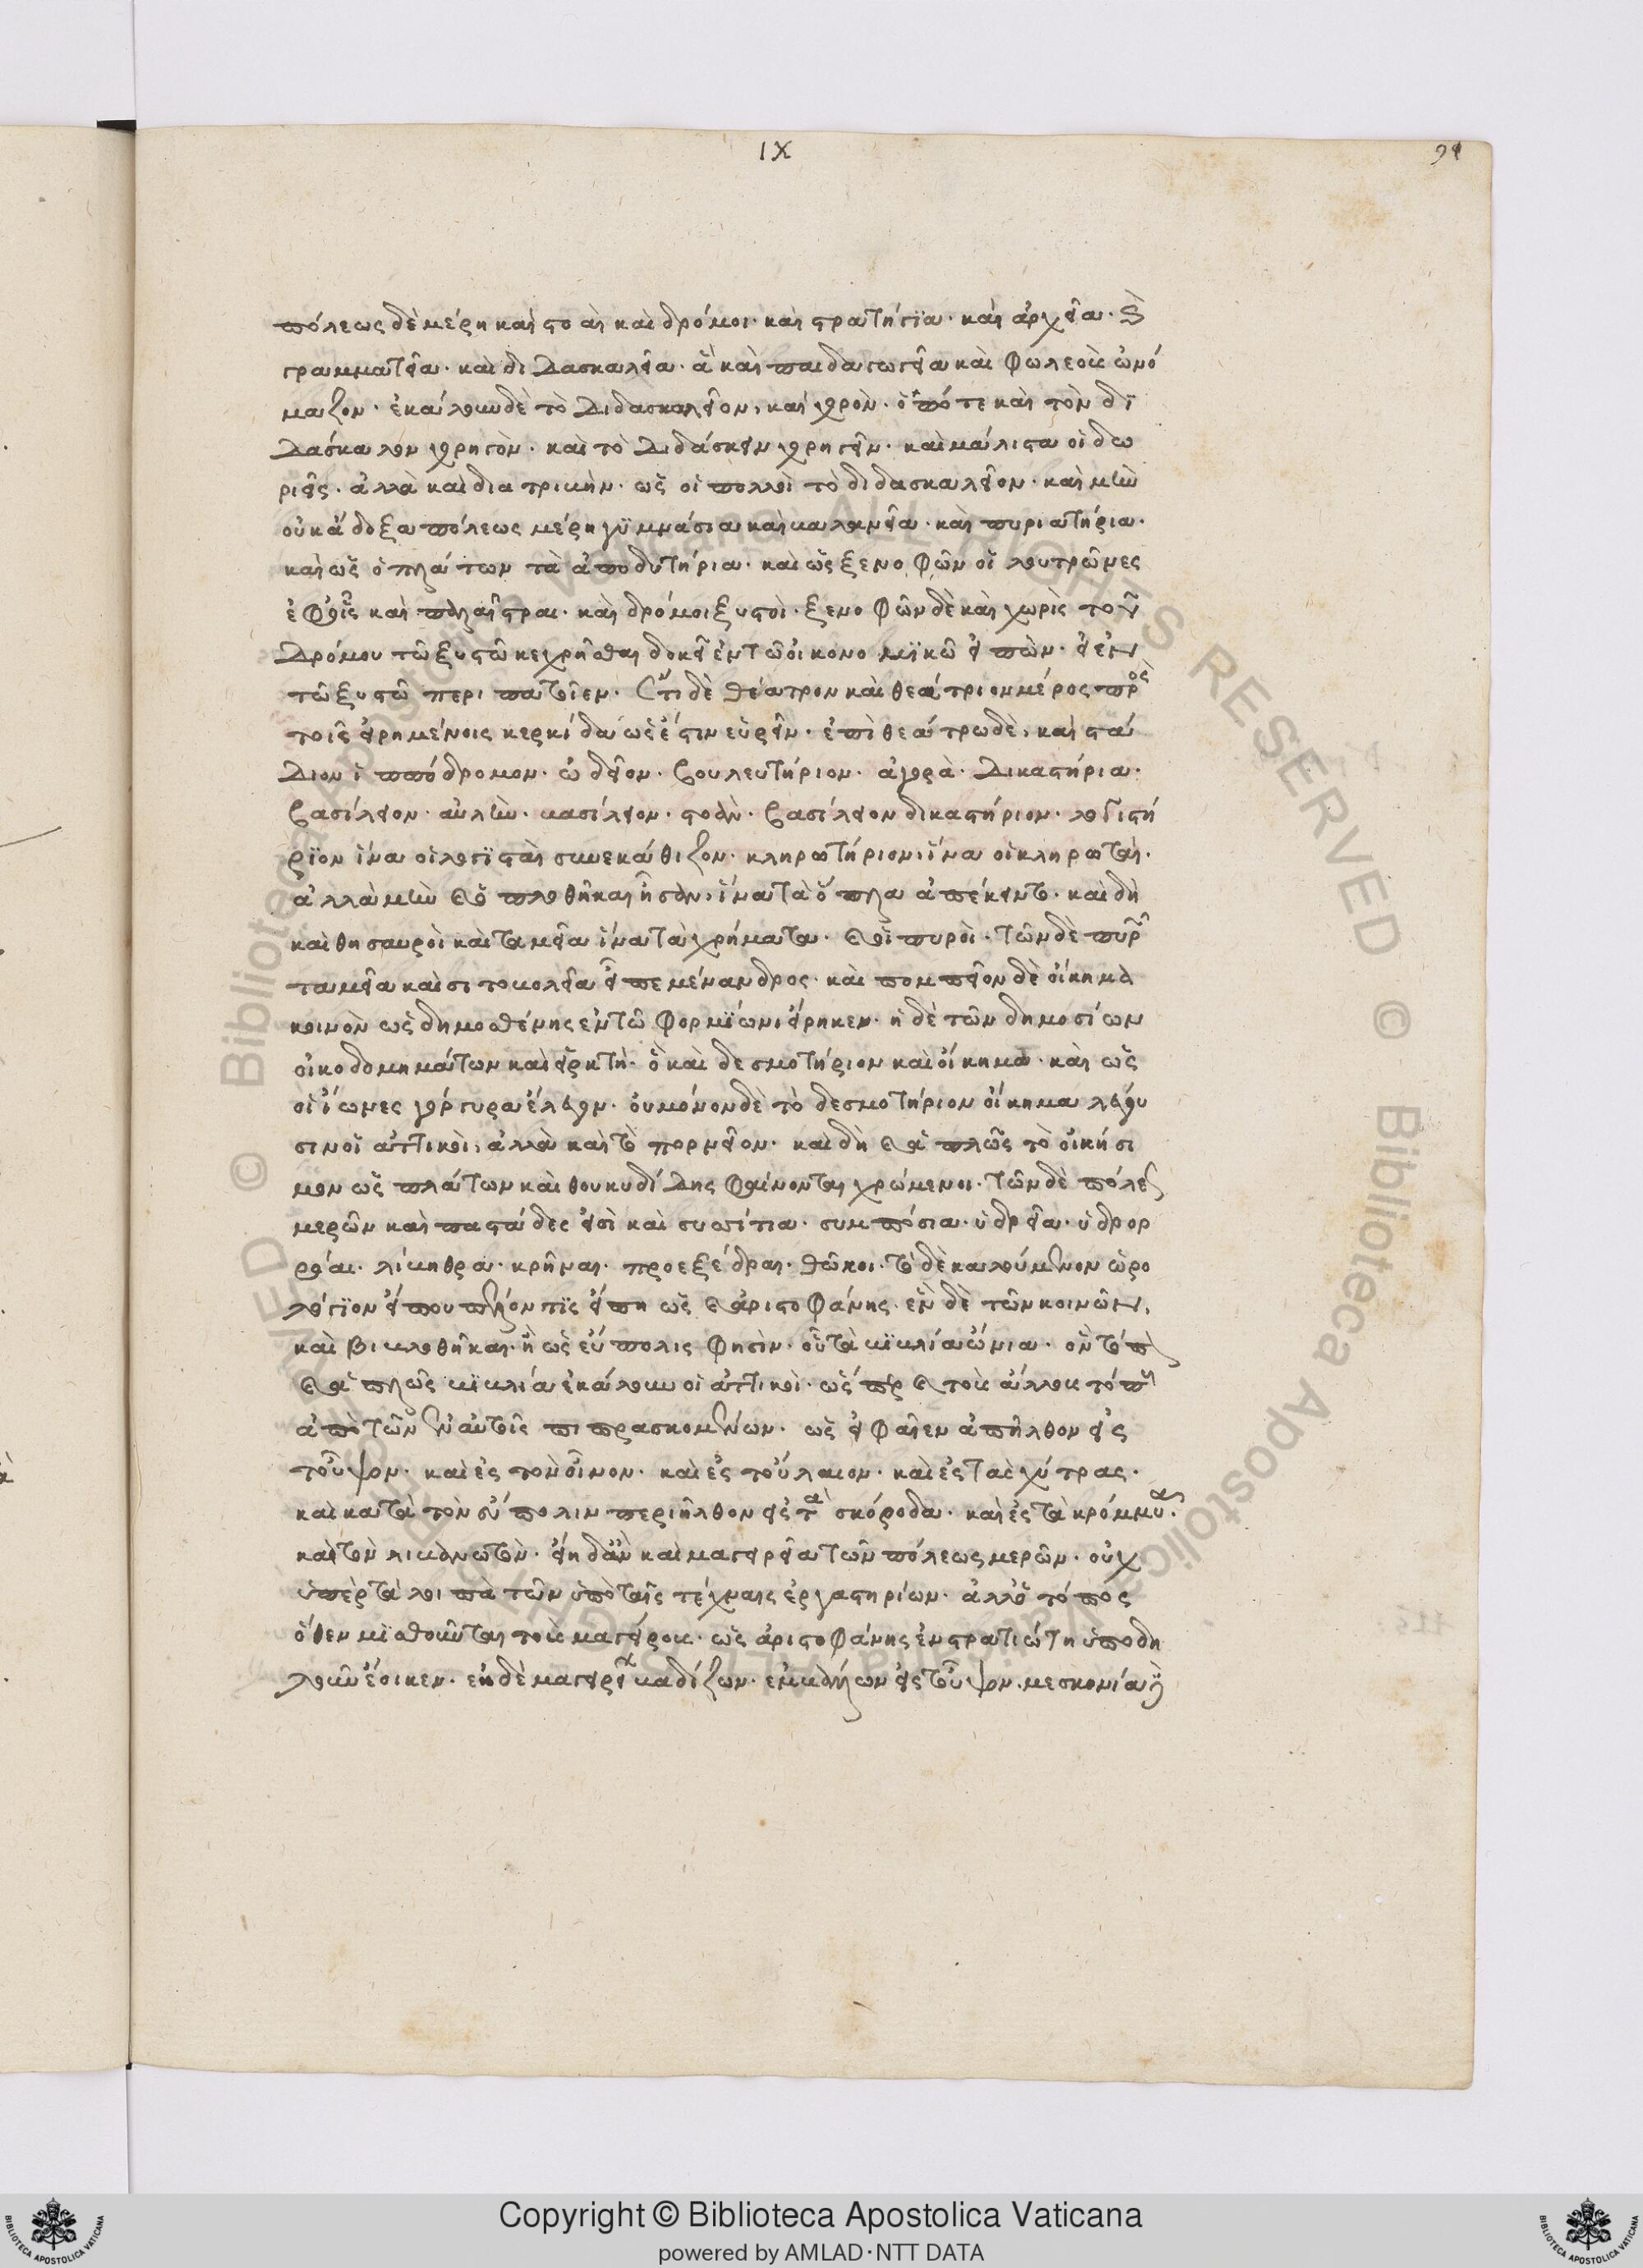 IX
πόλεως δὲ μέρη καὶ στοαὶ καὶ δρόμοι· καὶ στρατήγϊα· καὶ ἀρχεῖα· καὶ
γραμματεῖα· καὶ διδασκαλεῖα· ἃ καὶ παιδαγωγεῖα καὶ φωλεοὺς ὠνό
μαζον· ἐκάλουν δὲ τὸ διδασκαλεῖον, καὶ χορὸν· ὁπότε καὶ τὸν δϊ
δάσκαλον χορηγὸν· καὶ τὸ διδάσκειν χορηγεῖν· καὶ μάλιστα οἱ δω
ριεῖς· ἀλλὰ καὶ διατριβὴν· ὡς οἱ πολλοὶ τὸ διδασκαλεῖον· καὶ μὴν
οὐκ ἄδοξα πόλεως μέρη γϋμνάσια καὶ βαλανεῖα· καὶ πυριατήρια·
καὶ ὡς ὁ πλάτων τὰ ἀποδυτήρια· καὶ ὡς ξενοφῶν οἱ λουτρῶνες
ἐφ οἷς καὶ παλαῖστραι· καὶ δρόμοι ξυστοὶ· ξενοφῶν δὲ καὶ χωρὶς τοῦ
δρόμου τῶ ξυστῶ κεχρῆσθαι δοκεῖ ἐν τῶ οἰκονομϊκῶ εἰπὼν· εἰ ἐν
τῶ ξυστῶ περιπατοῖεν· ἔτι δὲ θέατρον καὶ θεάτριον μέρος πρὸς
τοῖς εἰρημένοις κερκίδα ὡς ἔστιν εὑρεῖν· ἐπὶ θεάτρω δὲ, καὶ στά
διον ἱππόδρομον· ὠδεῖον· βουλευτήριον· ἀγορὰ· δικαστήρια·
βασίλειον· αὐλὴν· βασίλειον· στοὰν· βασίλειον δικαστήριον· λογιστή
ρϊον ἵνα οἱ λογϊσταὶ συνεκάθιζον· κληρωτήριον, ἵνα οἱ κληρωταὶ·
ἀλλὰ μὴν καὶ ὁπλοθῆκαι ἦσαν, ἵνα τὰ ὅπλα ἀπέκειντο· καὶ δὴ
καὶ θησαυροὶ καὶ ταμεῖα ἵνα τὰ χρήματα· καὶ οἱ πυροὶ· τῶν δὲ πυρῶν
ταμεῖα καὶ σιτοβολεῖα εἶπε μένανδρος· καὶ πομπεῖον δὲ οἴκημα
κοινὸν ὡς δημοσθένης ἐν τῶ φορμϊωνι εἴρηκεν· ἡ δὲ τῶν δημοσίων
οἰκοδομημάτων καὶ εἱρκτή· ὃ καὶ δεσμοτήριον καὶ οἴκημα· καὶ ὡς
οἱ ἴωνες γόργυρα ἔλεγον· οὐ μόνον δὲ τὸ δεσμοτήριον οἴκημα λέγου
σιν οἱ ἀττικοὶ, ἀλλὰ καὶ τὸ πορνεῖον· καὶ δὴ καὶ ἁπλῶς τὸ οἰκήσι
μον ὡς πλάτων καὶ θουκυδίδης φαίνονται χρώμενοι· τῶν δὲ πόλεως
μερῶν καὶ παστάδες εἰσὶ καὶ συσσίτια· συμπόσια· ὑδρεῖα· ὑδρορ
ρόαι· κρῆναι· προεξέδραι· θῶκοι· τὸ δὲ καλούμενον ὡρο
λόγϊον εἴπου τϊς εἴπη ὡς καὶ ἀριστοφάνης· ἓν δὲ τῶν κοινῶν,
καὶ βιβλοθῆκαι· ἢ ὡς εὔπολις φησὶν· οὗ τὰ βϊβλία ὤνια·
καὶ ἁπλῶς βϊβλία ἐκάλουν οἱ ἀττικοὶ· ὥσπερ καὶ τοὺς ἄλλους τόπους
ἀπὸ τῶν ἐν αὐτοῖς πιπρασκομένων· ὡς εἰ φαῖεν ἀπῆλθον εἰς
τοὖψον· καὶ ἐς τὸν οἶνον· καὶ ἐς τοὔλαιον· καὶ ἐς τὰς χύτρας·
καὶ κατὰ τὸν εὔπολιν περιῆλθον εἰς τὰ σκόροδα· καὶ ἐς τὰ κρόμμυα·
καὶ τὸν λιβανωτὸν· εἴη δ' ἂν καὶ μαγειρεῖα τῶν πόλεως μερῶν· οὐχ
ὑπὲρ τὰ λοιπὰ τῶν ὑπὸ ταῖς τέχναις ἐργαστηρίων· ἀλλ' ὁ τόπος
ὅθεν μϊσθοῦνται τοὺς μαγείρους· ὡς ἀριστοφάνης ἐν στρατιώτη ὑποδη
λοῦν ἔοικεν·
Copyright © Biblioteca Apostolica Vaticana
powered by AMLAD·NTT DATA